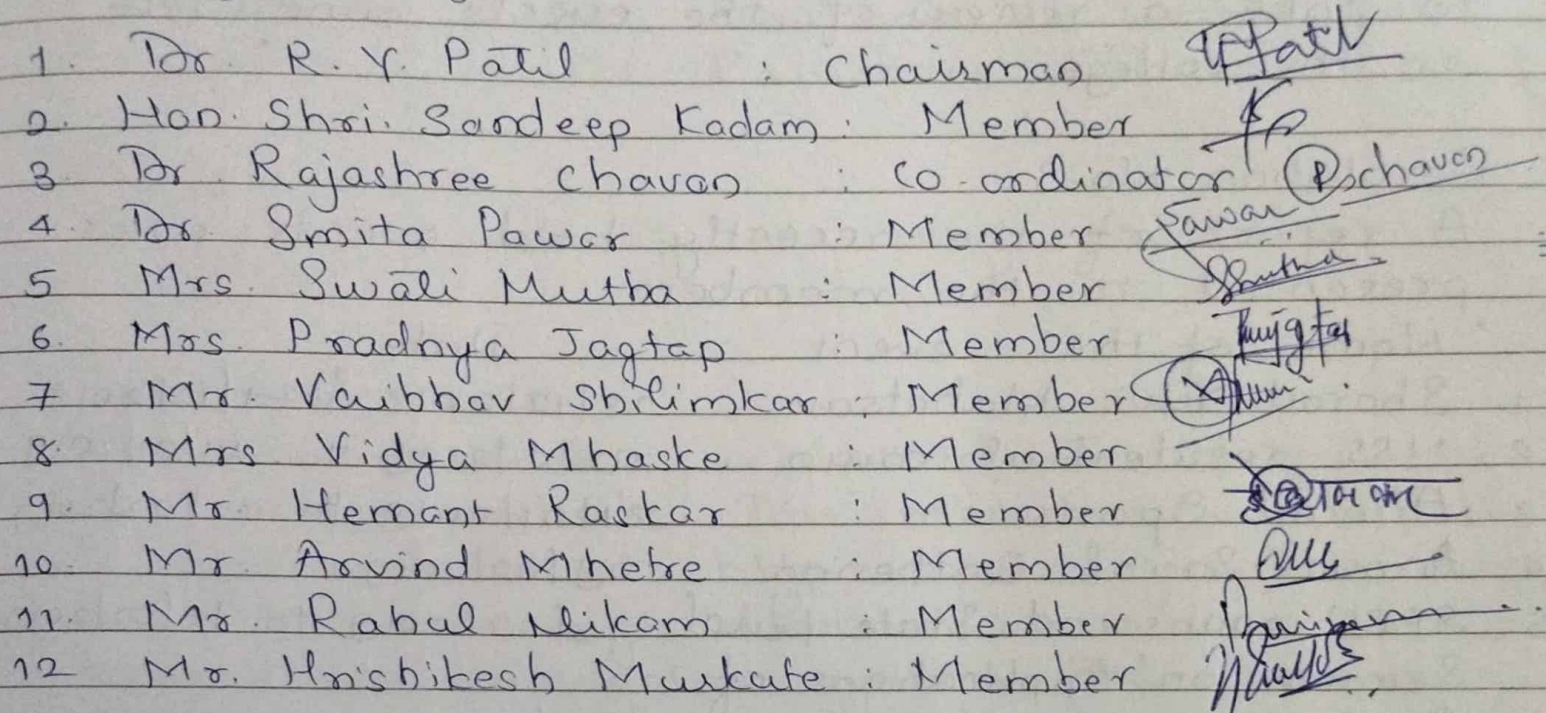 1. Dr. R. Y. Patil : Chairman Patil
2. Hon. Shri. Sandeep Kadam : Member
3 Dr Rajashree Chavan : Co-ordinator Rchavan
4. Dr. Smita Pawar : Member Pawar
5 Mrs. Swati Mutha : Member Smutha
6. Mrs. Pradnya Jagtap : Member
7 Mr. Vaibhav Shilimkar : Member
8. Mrs Vidya Mhaske : Member
9. Mr Hemant Raskar : Member
10. Mr. Arvind Mhetre : Member
11. Mr. Rahul Nikam : Member
12 Mr. Hrishikesh Murkute : Member